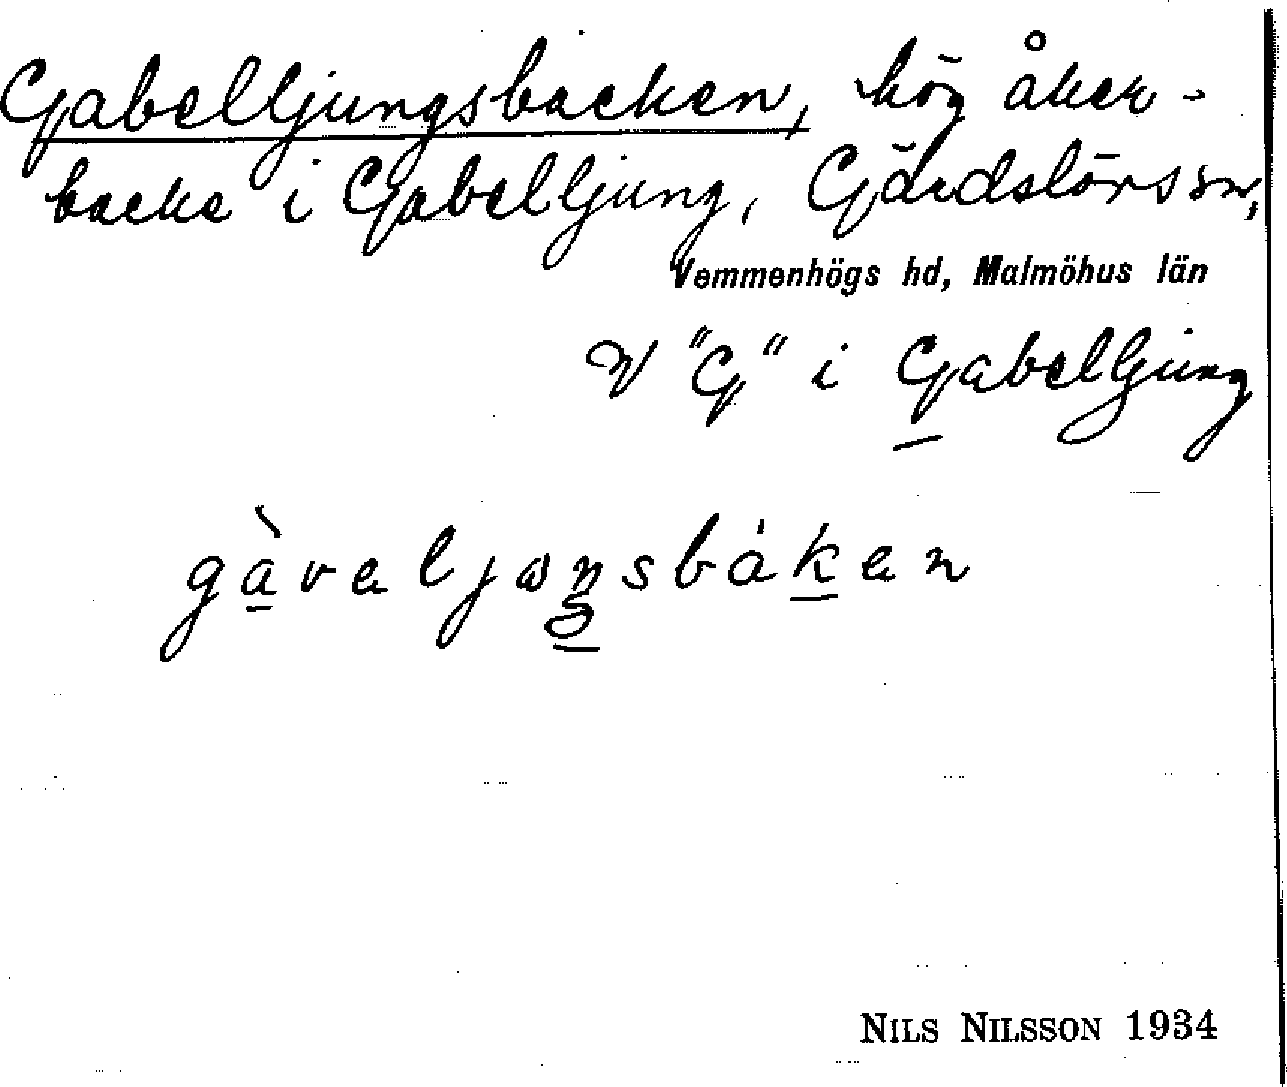 Gabelljungsbacken, hög åker-
backe i Gabelljung, Gärdslövs sn,
Vemmenhögs hd, Malmöhus län
V "G" i Gabelljung
gàveljꞷŋsbákен
NILS NILSSON 1934